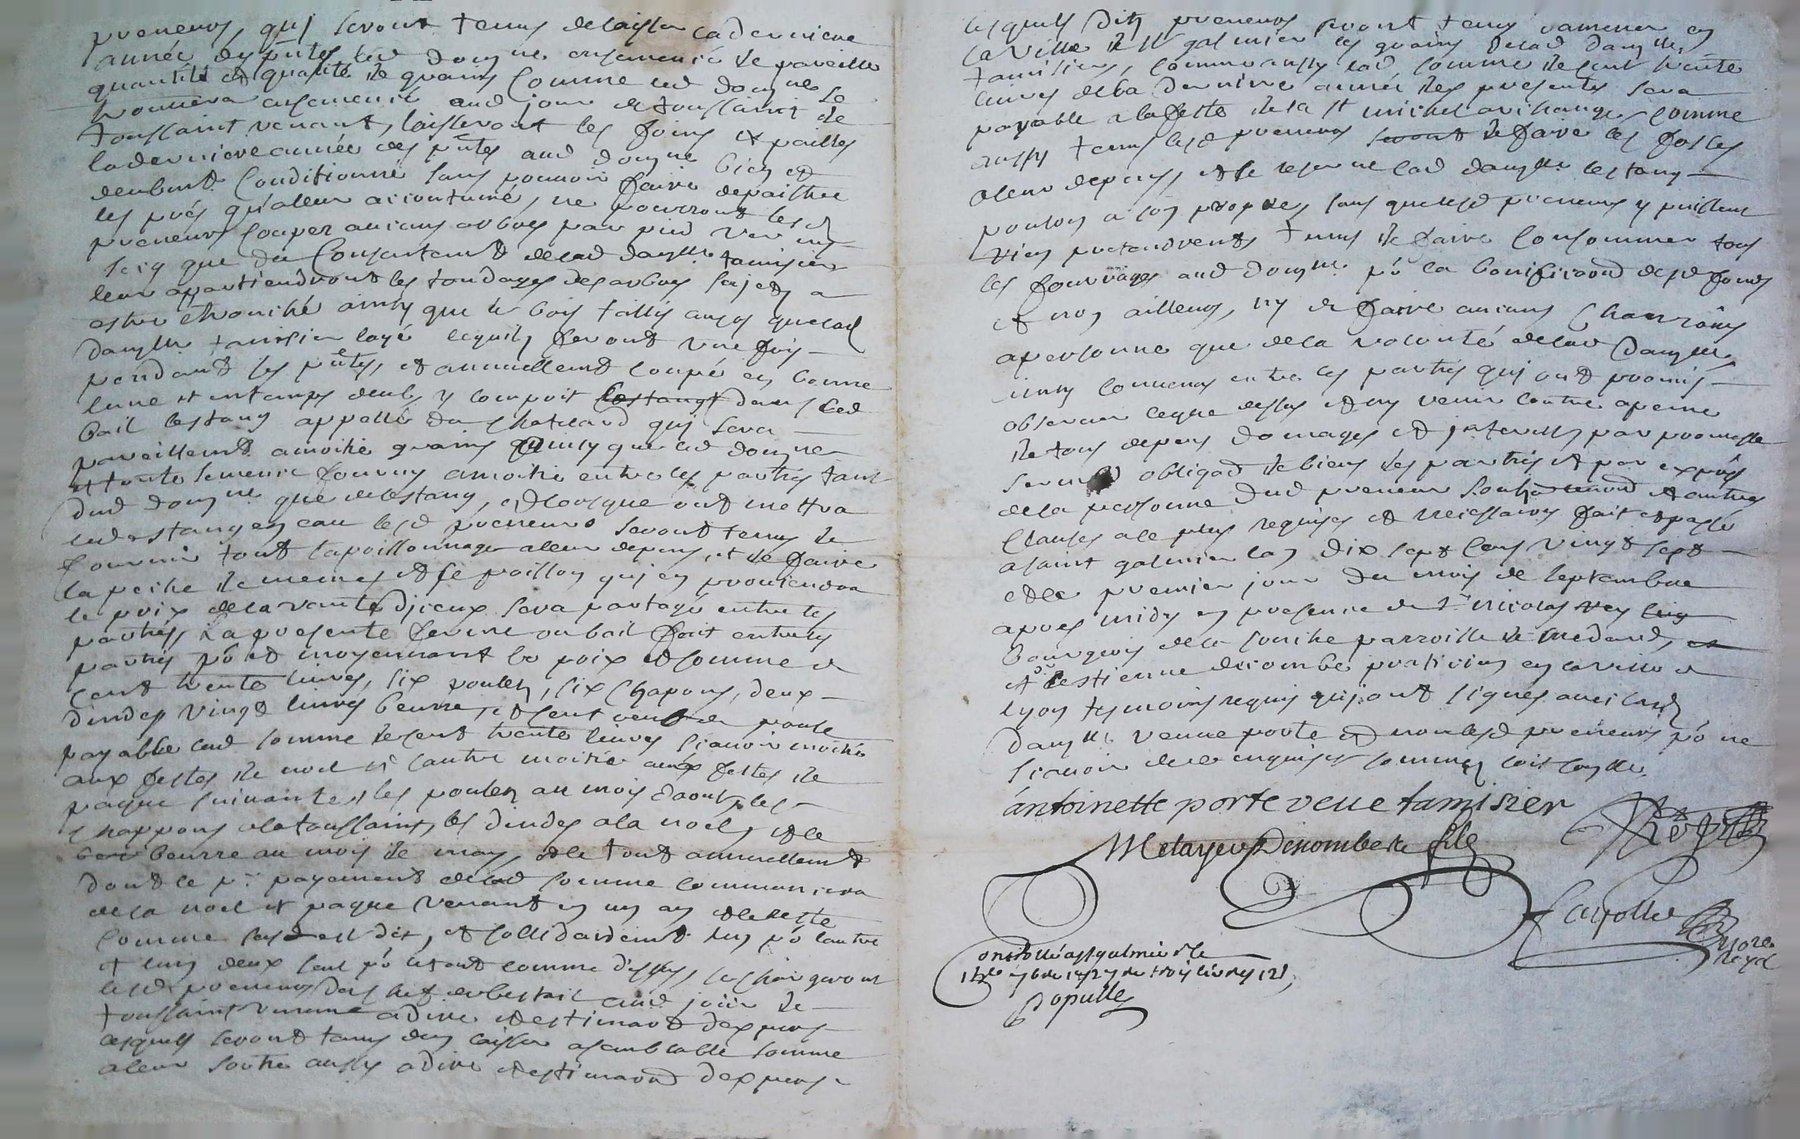 preneurs, quj seront tenus delaisser laderniere
année des pntes led domyne ensemencé de pareille
quantité et qualité de grains comme led domyne se
trouvera ensemencé aud jour de toussaint de
toussaint venant, laisseront les foins et pailles
laderniere année des pntes aud domyne bien et
deubmt conditionné sans pouvoir faire depaistre
les prés qu'aleur accoutumé, ne pourront lesd
preneurs couper aucuns arbres par pied
que du consentemt delad damlle tamisier
leur appartiendront les tondages des arbres sujets a
estre ebranché ainsy que le bois taillis
damlle tamisier lequel seront une fois
pendant les pntes, et annuellemt coupé en bonne
lune et entemps deub, y compris lestang dans led
bail lestang appellé du chatelard quj sera
pareillemt amoitié grains ainsy que led domyne
et toute semence fournis amoitié entre les parties tant
dud domyne que delestang, et lorsque ont mettra
led estang en eau lesd preneurs seront tenus de
fournir tout lapoissonnage aleur depens, et de faire
la peche de memes et le poisson quj en proviendra
le prix delavente djceux sera partagé entre les
parties, La presente ferme ou bail fait entre les
parties pr et moyennant le prix et somme de
cent trente livres, six poulets, six chapons, deux
dindes vingt livres beurre, et cent oeufs de poule
payable lad somme de cent trente livres scavoir moitié
aux festes de noel et lautre moitié aux festes de
paque suivante, les poulets au mois daout, les
chappons ala toussaint, les dindes ala noel, et le
beurre au mois de may, et le tout annuellemt
dont le pr payement delad somme commencera
dela noel et paque venant en un an et le reste
comme susd est dit, et sollidairemt lun pr lautre
et lun deux seul pr letout comme dessus, se chargeront
lesd preneurs du bestail aud jour de
toussaint venant adire et estimaon dexpers
desquels seront tenus den laisser asemblable somme
aleur sortie aussy adire et estimaon dexpers
lesquels dits preneurs seront tenus damener en
la ville de st galmier les grains delad damlle
tamisier, comme aussy lad somme de cent trente
livres dela derniere année des presentes sera
payable alafeste de la st michel archange, comme
aussy tenus lesd preneurs seront de faire les fosses
aleur depens, et se reserve lad damlle lestang
poulon a son propre, sans que lesd preneurs y puissent
rien pretendre tenus de faire consommer tous
les fourrages aud domyne pr la bonificaon desd fonds
et non ailleurs, ny de faire aucuns charroins
apersonne que dela volonté delad damlle
ainsy convenu entre les parties quj ont promis
observer ceque dessus et ny venir contre apeine
de tous depens domages et interests par promesse
sermt obligaon de biens des parties et par exprès
dela personne dud preneur et autres
clauses ale plus requises et necessaires fait et passé
asaint galmier lan dix sept cens vingt sept
et le premier jour du mois de septembre
apres midy en presence de sr nicolas rey
bourgeois dela souche parroisse de medard,
et sr estienne dicombe praticien en la ville de
lyon tesmoins requis quj ont signés avec lad
damlle veuve porte et non lesd preneurs pr ne
scavoir de ce enquis et sommés soit controllé.
antoinette porte veue tamisier
Metayer Dicombe le fils
controllé ast galmier le
1er 7bre 1727 de trois livres 12s
Populle